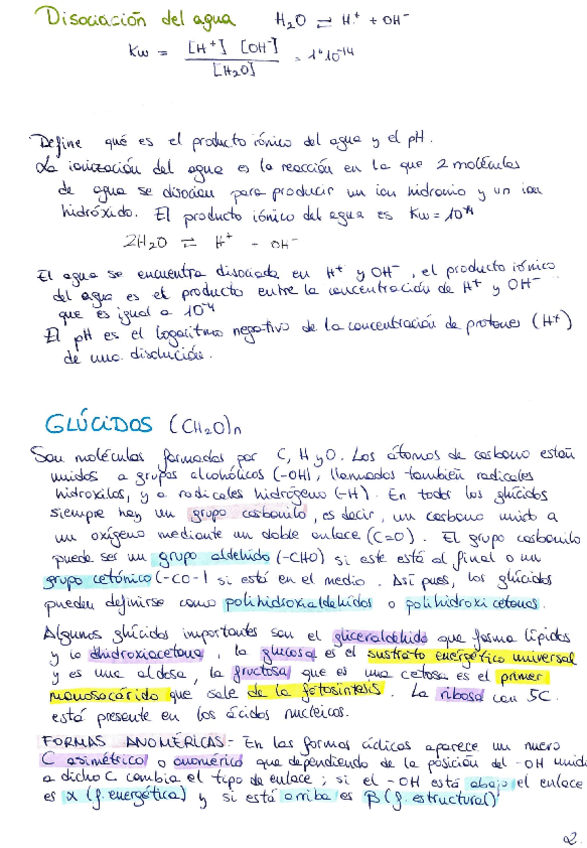 Disociación del agua H₂O ⇌ H⁺ + OH⁻
Kw = [H⁺] [OH⁻] / [H₂O] = 1*10⁻¹⁴
Define qué es el producto iónico del agua y el pH.
La ionización del agua es la reacción en la que 2 moléculas
de agua se disocian para producir un ion hidronio y un ion
hidróxido. El producto iónico del agua es Kw = 10⁻¹⁴
2H₂O ⇌ H⁺ - OH⁻
El agua se encuentra disociada en H⁺ y OH⁻, el producto iónico
del agua es el producto entre la concentración de H⁺ y OH⁻
que es igual a 10⁻¹⁴
El pH es el logaritmo negativo de la concentración de protones (H⁺)
de una disolución.
GLÚCIDOS (CH₂O)n
Son moléculas formadas por C, H y O. Los átomos de carbono están
unidos a grupos alcohólicos (-OH), llamados también radicales
hidroxilos, y a radicales hidrógeno (-H). En todos los glúcidos
siempre hay un grupo carbonilo, es decir, un carbono unido a
un oxígeno mediante un doble enlace (C=O). El grupo carbonilo
puede ser un grupo aldehído (-CHO) si este está al final o un
grupo cetónico (-CO-) si está en el medio. Así pues, los glúcidos
pueden definirse como polihidroxialdehídos o polihidroxicetonas.
Algunos glúcidos importantes son el gliceraldehído que forma lípidos
y la dhidroxiacetona, la glucosa es el sustrato energético universal
y es una aldosa, la fructosa que es una cetosa es el primer
monosacárido que sale de la fotosíntesis. La ribosa con 5C.
está presente en los ácidos nucleicos.
FORMAS ANOMÉRICAS- En las formas cíclicas aparece un nuevo
C asimétrico o anomérico que dependiendo de la posición del -OH unido
a dicho C cambia el tipo de enlace; si el -OH está abajo el enlace
es α (f. energética) y si está arriba es β (f. estructural)
2